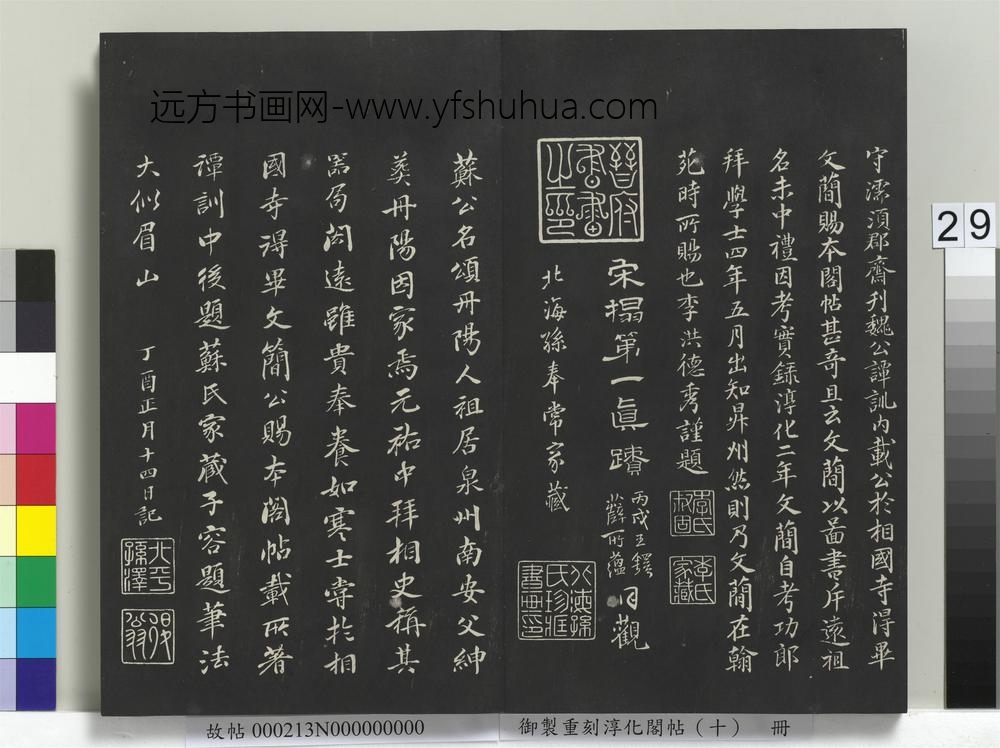 远方书画网-www.yfshuhua.com
守濡須郡齋刊魏公譚訓内載公於相國寺得畢
文簡賜本閣帖甚奇且云文簡以啚書斥遠祖
名未中禮因考實錄淳化二年文簡自考功郎
拜學士四年五月出知昇州然則乃文簡在翰
苑時所賜也李洪德秀謹題
李氏叔固
李氏家藏
晉府書畫之印
宋搨第一眞蹟
丙戌王鐸
薛所蘊
同觀
北海孫奉常家藏
蘇公名頌丹陽人祖居泉州南安父紳
葬丹陽因家焉元祐中拜相史稱其
器局閎遠雖貴奉養如寒士嘗於相
國寺得畢文簡公賜本閣帖載所著
譚訓中後題蘇氏家藏子容題筆法
大似眉山
丁酉正月十四日記
北平孫澤
退翁
29
故帖 000213N000000000
御製重刻淳化閣帖（十） 冊